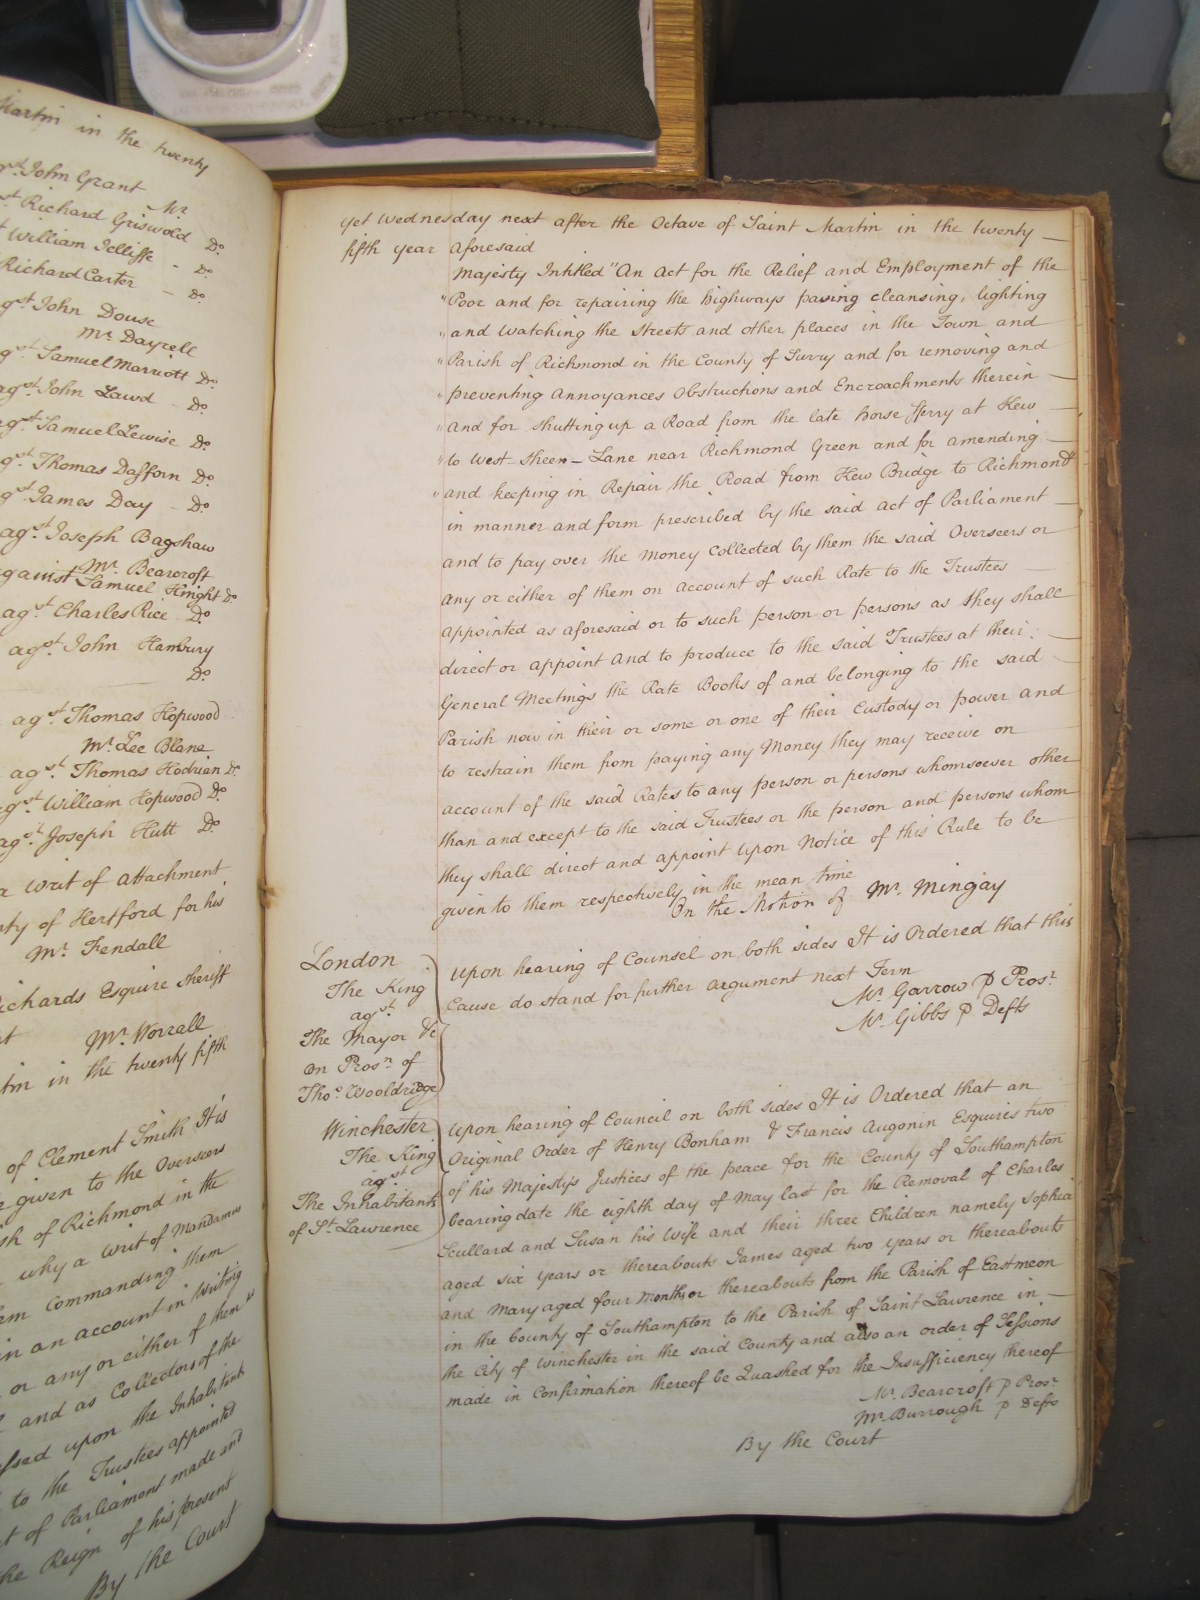 Martin in the twenty
agst. John Grant
Mr
Richard Griswold Do.
William Jelliffe - Do.
Richard Carter - Do.
agst John Douse
Mr Dayrell
agst Samuel Marriott Do.
agst John Lawd - Do.
agst Samuel Lewise Do.
agst Thomas Dafforn Do.
agst James Day - Do.
agst. Joseph Bagshaw
Mr. Bearcroft
against Samuel Knight Do
agst. Charles Rice Do.
agst. John Hambury
Do.
agst. Thomas Hopwood
Mr. Lee Blane
agst. Thomas Hodrian Do.
agst William Hopwood Do.
agst Joseph Hutt Do.
a writ of Attachment
of Hertford for his
Mr. Fendall
Richards Esquire Sheriff
Mr. Worrall
in the twenty fifth
of Clement Smith It is
given to the Overseers
of Richmond in the
why a Writ of Mandamus
commanding them
in an account in Writing
or any or either of them
and as Collectors of the
upon the Inhabitants
to the Trustees appointed
of Parliament made and
the Reign of his present
By the Court
Yet Wednesday next after the Octave of Saint Martin in the twenty
fifth year Aforesaid
Majesty Intitled "An Act for the Relief and Employment of the
"Poor and for repairing the highways paving cleansing, lighting
"and Watching the Streets and other places in the Town and
"Parish of Richmond in the County of Surry and for removing and
"preventing Annoyances Obstructions and Encroachments therein
"and for shutting up a Road from the late horse fferry at Kew
"to West-Sheen-Lane near Richmond Green and for amending
"and keeping in Repair the Road from Kew Bridge to Richmond"
in manner and form prescribed by the said Act of Parliament
and to pay over the Money Collected by them the said Overseers or
any or either of them on Account of such Rate to the Trustees
appointed as aforesaid or to such person or persons as they shall
direct or appoint And to produce to the said Trustees at their
General Meetings the Rate Books of and belonging to the said
Parish now in their or some or one of their Custody or power and
to restrain them from paying any Money they may receive on
account of the said Rates to any person or persons whomsoever other
than and except to the said Trustees or the person and persons whom
they shall direct and appoint Upon Notice of this Rule to be
given to them respectively in the mean time
On the Motion of Mr. Mingay
London
The King
agst.
The Mayor &c
on Prosn. of
Thos. Wooldridge
Upon hearing of Counsel on both sides It is Ordered that this
Cause do stand for further argument next Term
Mr. Garrow p Prosr.
Mr. Gibbs p Defts
Winchester
The King
agst
The Inhabitants
of St. Lawrence
Upon hearing of Council on both sides It is Ordered that an
Original Order of Henry Bonham & Francis Augonin Esquires two
of his Majestys Justices of the peace for the County of Southampton
bearing date the eighth day of May last for the Removal of Charles
Scullard and Susan his Wife and their three Children namely Sophia
aged six years or thereabouts James aged two years or thereabouts
and Mary aged four Months or thereabouts from the Parish of Eastmeon
in the County of Southampton to the Parish of Saint Lawrence in
the City of Winchester in the said County and also an order of Sessions
made in Confirmation thereof be Quashed for the Insufficiency thereof
Mr. Bearcroft p Prosr.
Mr. Burrough p Defts
By the Court